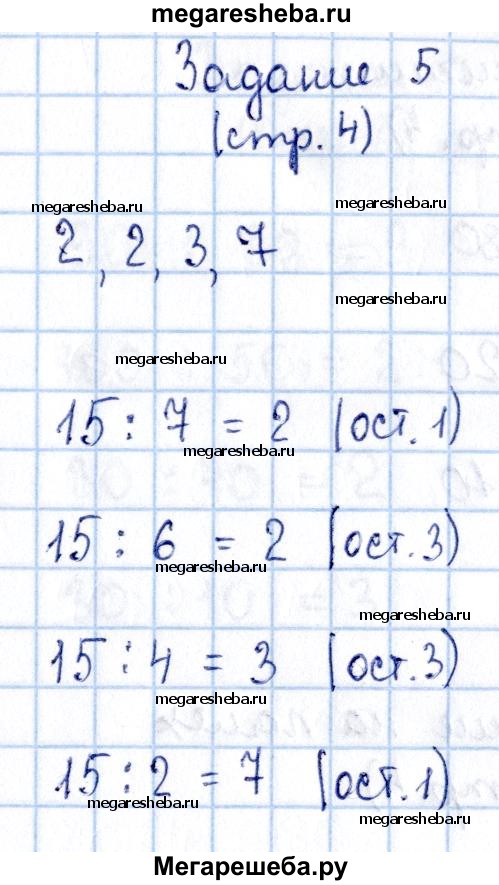 megaresheba.ru
Задание 5
(стр. 4)
megaresheba.ru megaresheba.ru
2, 2, 3, 7
megaresheba.ru
megaresheba.ru
15 : 7 = 2 (ост. 1)
megaresheba.ru
15 : 6 = 2 (ост. 3)
megaresheba.ru
megaresheba.ru
15 : 4 = 3 (ост. 3)
megaresheba.ru
15 : 2 = 7 (ост. 1)
megaresheba.ru megaresheba.ru
Мегарешеба.ру